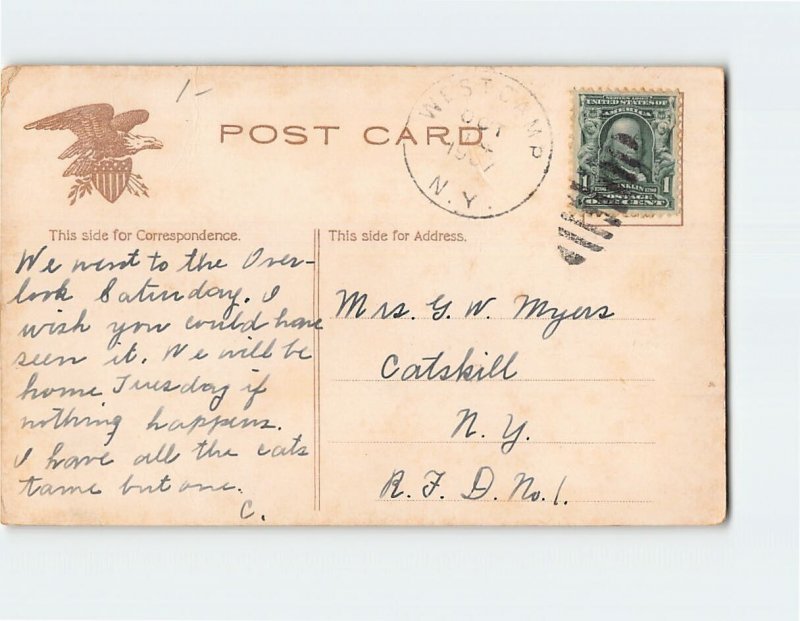 1-
POST CARD
WEST CAMP
OCT
N.Y.
SERIES 1902
UNITED STATES OF
AMERICA
1 FRANKLIN 1
POSTAGE
ONE CENT
This side for Correspondence.
We went to the Over-
look Saturday. I
wish you could have
seen it. We will be
home Tuesday if
nothing happens.
I have all the cats
tame but one.
C.
This side for Address.
Mrs. G. W. Myers
Catskill
N. Y.
R. F. D. No. 1.